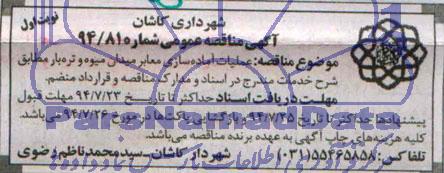 نوبت اول
شهرداری کاشان
آگهی مناقصه عمومی شماره ۹۴/۸۱۰
موضوع مناقصه: عملیات آماده‌سازی معابر میدان میوه و تره‌بار مطابق
شرح خدمات مندرج در اسناد و مدارک مناقصه و قرارداد منضم.
مهلت دریافت اسناد حداکثر تا تاریخ ۹۴/۷/۲۳ مهلت قبول
پیشنهادها حداکثر تا تاریخ ۹۴/۷/۲۵ و بازگشایی پاکت‌ها در مورخ ۹۴/۷/۲۶ می‌باشد.
کلیه هزینه‌های چاپ آگهی به عهده برنده مناقصه می‌باشد.
تلفاکس: ۵۵۴۶۵۸۵۸(۰۳۱) شهردار کاشان-سیدمحمدناظم رضوی